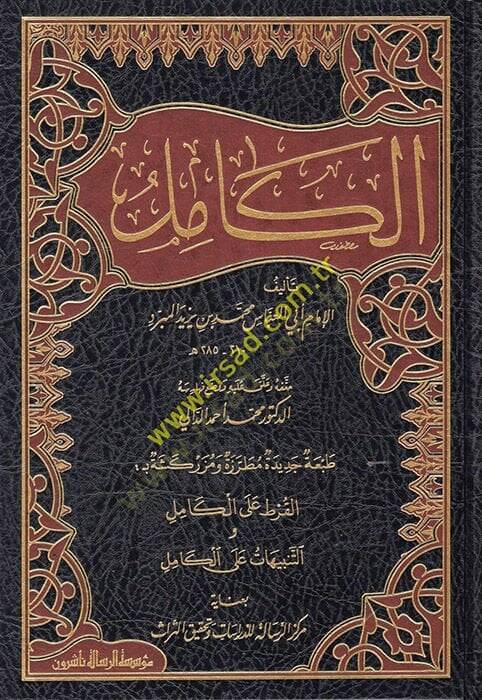 الكَامِلُ
تأليف
الإمام أبي العباس محمد بن يزيد المبرد
٢١٠ - ٢٨٥ هـ
الدكتور محمد أحمد الدالي
طَبعَةٌ جَديدَةٌ مُطَرَّزَةٌ وَمُزَركَشَةٌ بـ :
القُرط عَلَى الكَامِلِ
و
التَّنبِيهَات عَلَى الكَامِلِ
بعناية
مركز الرسالة للدراسات وتحقيق التراث
مؤسسة الرسالة ناشرون
www.irsad.com.tr